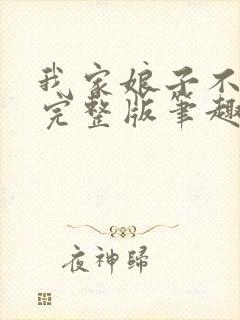 我家娘子不
完整版笔趣
夜神歸